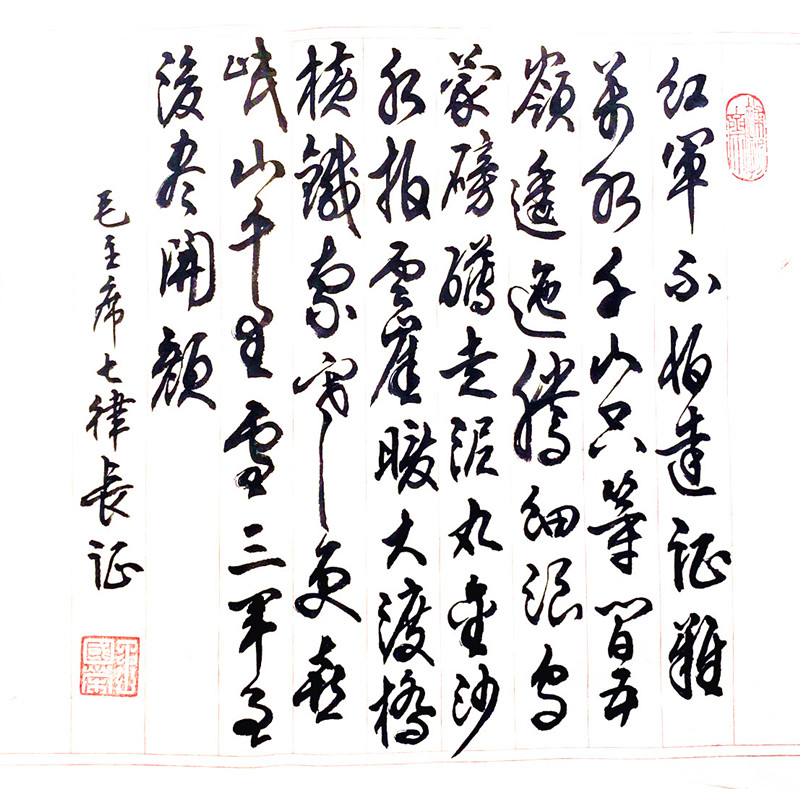 红军不怕远征难
萬水千山只等閒五
嶺逶迤騰細浪烏
蒙磅礴走泥丸金沙
水拍雲崖暖大渡橋
橫鐵索寒更喜
岷山千里雪三軍過
後尽開顏
毛主席七律長証